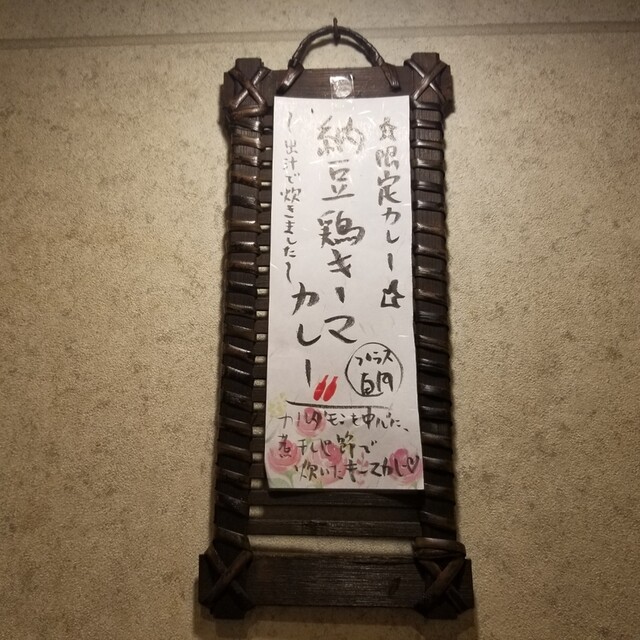 ☆限定カレー☆
納豆鶏キーマ
カレー
〜出汁で炊きました〜
プラス
カルダモンを中心に、
煮干しと節で
炊いたキーマカレー♡